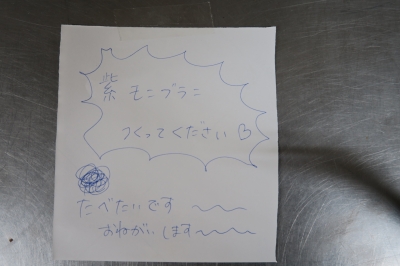 紫モンブラン
つくってください♡
たべたいです 〜〜
おねがいします〜〜〜